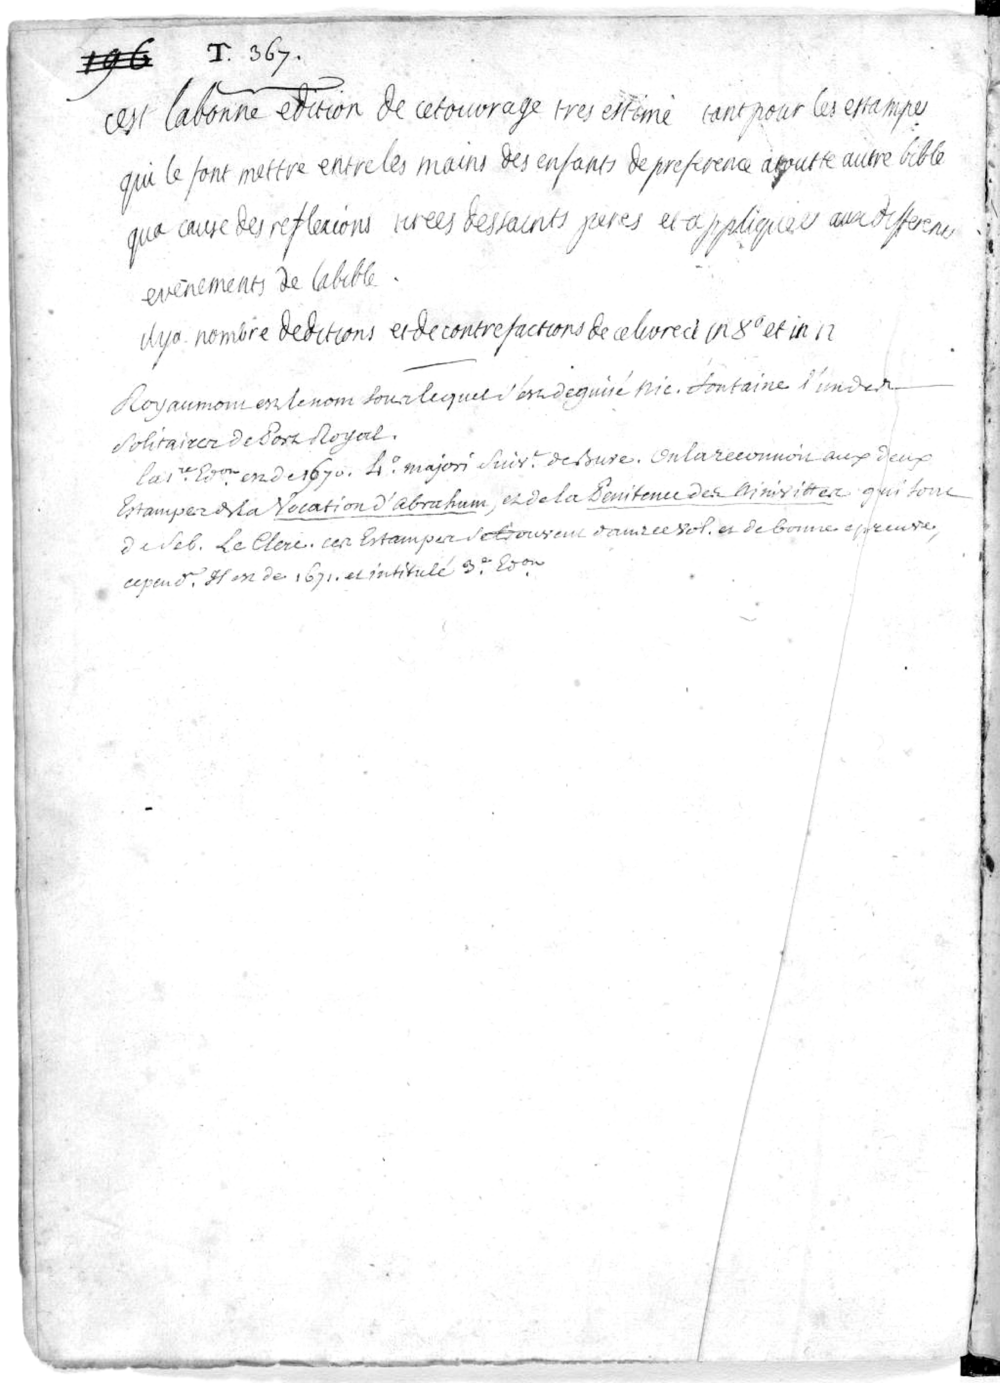 196 T. 367.
cest labonne edition de cetouvrage tres estimé tant pour les estampes
qui le font mettre entre les mains des enfants de preference atoutte autre bible
qua cause des reflexions tirees des saints peres et appliquees aux differents
evenements de labible .
ilya nombre deditions et de contrefactions de ce livre ci in 8º et in 12
Royaumont est le nom sous lequel s'est deguisé Nic. Fontaine l'un des
Solitaires de Port Royal.
la 1re Edon est de 1670. 4º. majori suivt. de Bure. on la reconnoit aux deux
Estampes de la Vocation d'Abraham, et de la Penitence des Ninivittes qui sont
de Seb. Le Clerc. ces Estampes se trouvent dans ce vol. et de bonne epreuve,
cependt. il est de 1671. et intitulé 3e Edon